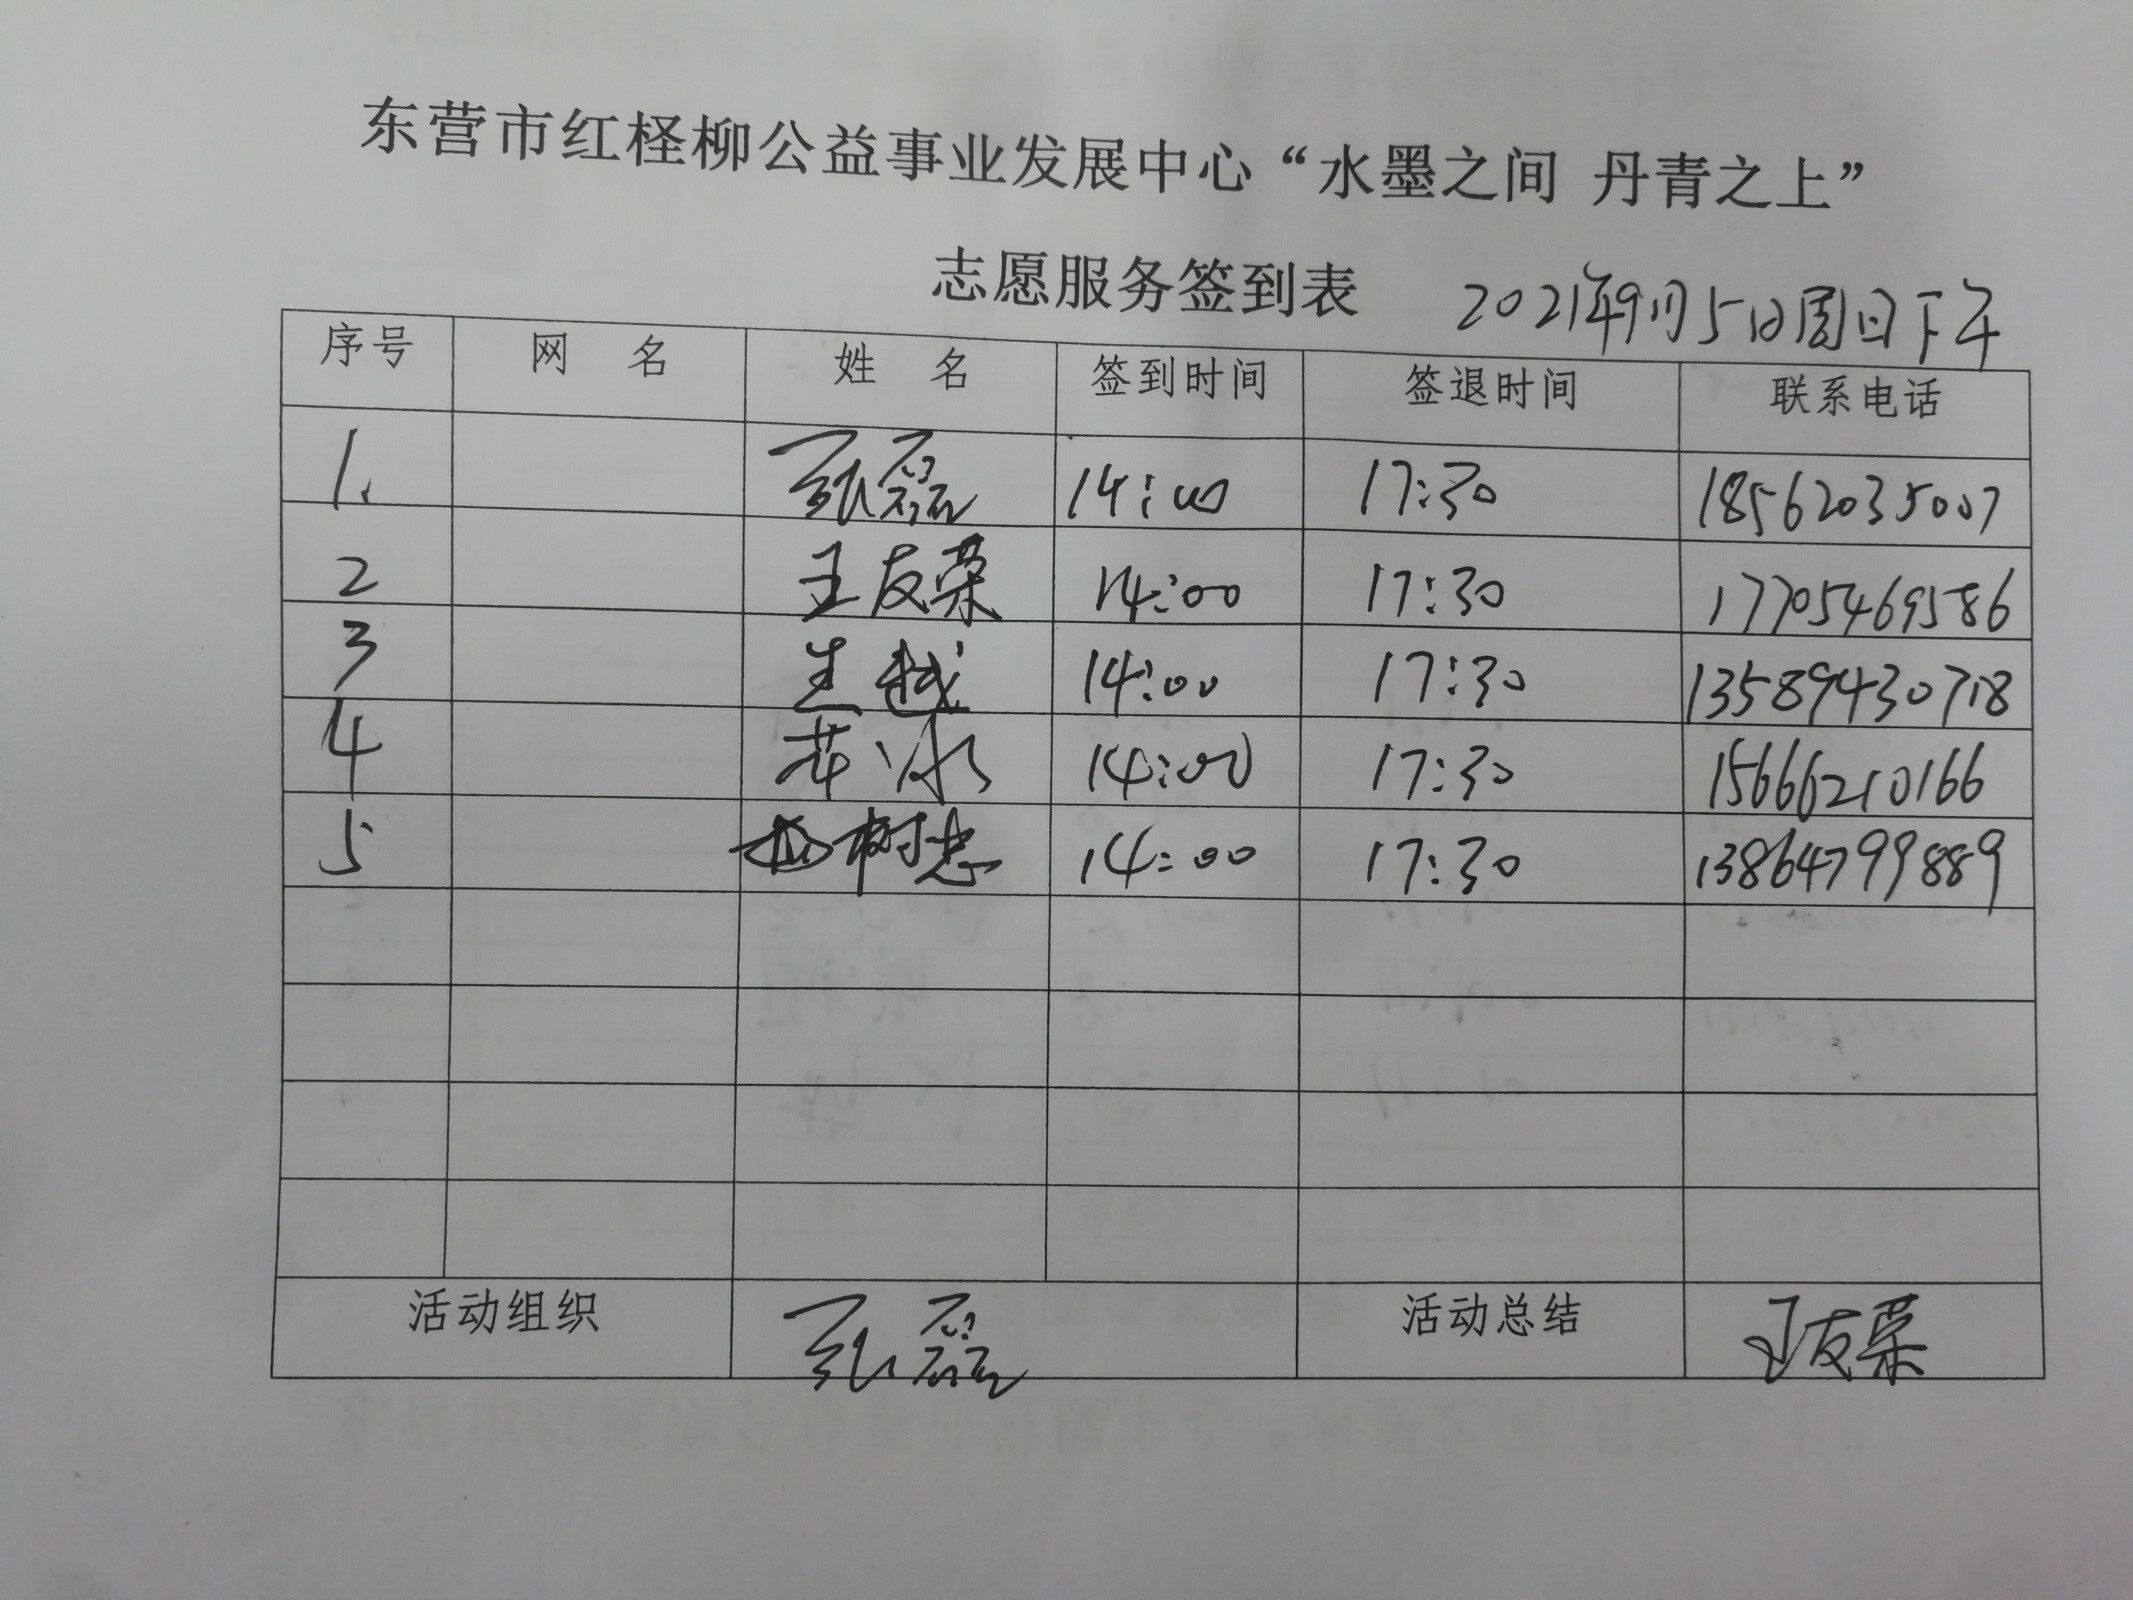 东营市红柽柳公益事业发展中心“水墨之间 丹青之上”
志愿服务签到表 2021年9月5日周日下午
序号 网 名 姓 名 签到时间 签退时间 联系电话
1. 张磊 14:00 17:30 18562035007
2 王友荣 14:00 17:30 17705469586
3 生越 14:00 17:30 13589430718
4 苏冰 14:00 17:30 15666210166
5 树忠 14:00 17:30 13864799889
活动组织 张磊 活动总结 王友荣